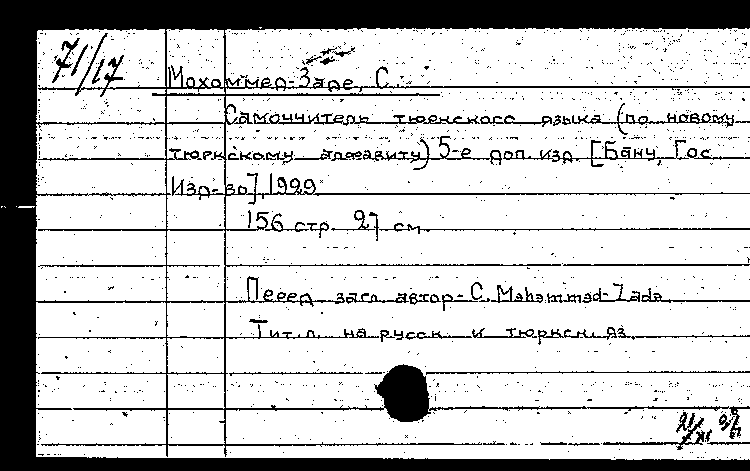 71/17
Мохаммед-Заде, С.
Самоучитель тюркского языка (по новому
тюркскому алфавиту) 5-е доп. изд. [Баку, Гос
Изд-во], 1929
156 стр. 27 см.
Перед загл. автор - С. Məhəmməd-Zadə
Тит. л. на русск. и тюркск. яз.